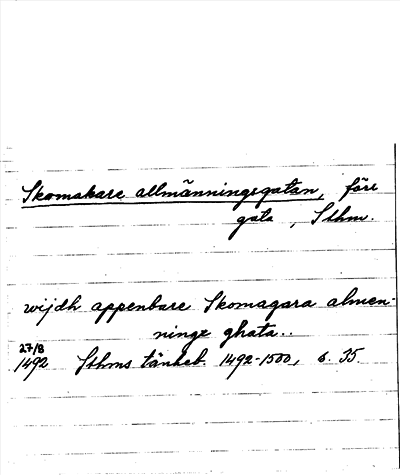 Skomakare allmänningsgatan, förr
gata, Sthm.
wijdh appenbare Skomagara almen-
ninge ghata..
27/8
1492 Sthms tänkeb. 1492-1500, s. 35